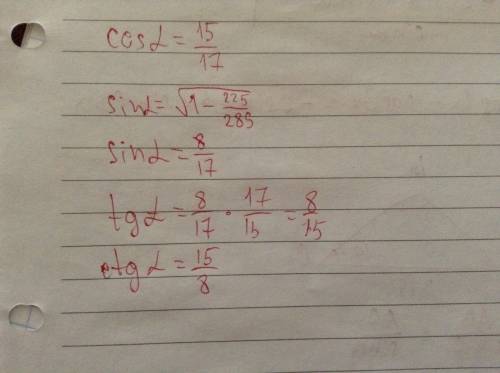 cos α = 15/17
sin α = √(1 − 225/289)
sin α = 8/17
tg α = 8/17 · 17/15 = 8/15
ctg α = 15/8